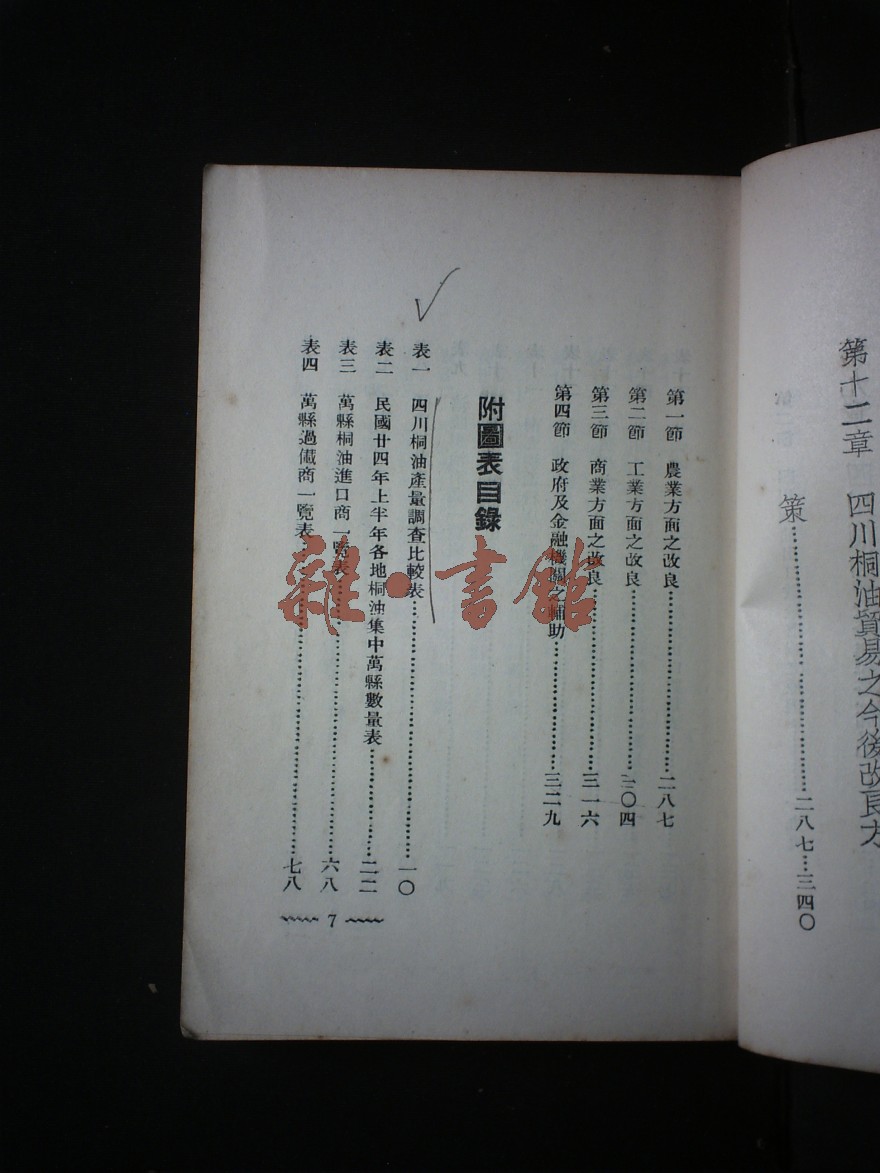 第十二章 四川桐油貿易之今後改良方
策……………………二八七…三四〇
第一節 農業方面之改良……………………二八七
第二節 工業方面之改良……………………三〇四
第三節 商業方面之改良……………………三一六
第四節 政府及金融機關之輔助……………………三二九
附圖表目錄
表一 四川桐油產量調查比較表……………………一〇
表二 民國廿四年上半年各地桐油集中萬縣數量表……………………二二
表三 萬縣桐油進口商一覽表……………………六八
表四 萬縣過儎商一覽表……………………七八
7
雜·書館